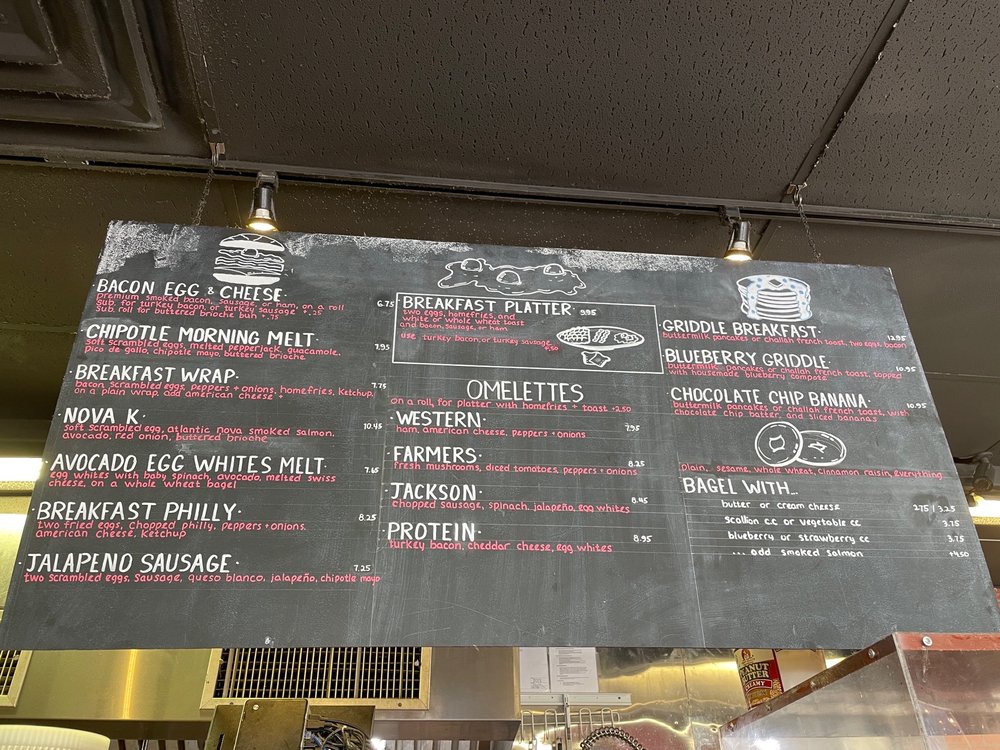 BACON EGG & CHEESE·
premium smoked bacon, sausage, or ham, on a roll 6.75
Sub. for turkey bacon, or turkey sausage +.25
Sub roll for buttered brioche bun +.75
CHIPOTLE MORNING MELT·
soft scrambled eggs, melted pepperjack, guacamole, 7.95
pico de gallo, chipotle mayo, buttered brioche
BREAKFAST WRAP·
bacon, scrambled eggs, peppers + onions, homefries, ketchup, 7.75
on a plain wrap, add american cheese +
NOVA K·
soft scrambled egg, atlantic nova smoked salmon, 10.45
avocado, red onion, buttered brioche
AVOCADO EGG WHITES MELT·
egg whites with baby spinach, avocado, melted swiss 7.65
cheese, on a whole wheat bagel
BREAKFAST PHILLY·
two fried eggs, chopped philly, peppers + onions, 8.25
american cheese, ketchup
JALAPENO SAUSAGE·
7.25
two scrambled eggs, sausage, queso blanco, jalapeño, chipotle mayo
BREAKFAST PLATTER· 9.95
two eggs, homefries, and
white or whole wheat toast
and bacon, sausage, or ham
use turkey bacon, or turkey sausage
+.50
OMELETTES
on a roll, for platter with homefries + toast +2.50
WESTERN·
ham, american cheese, peppers + onions 7.95
FARMERS·
fresh mushrooms, diced tomatoes, peppers + onions 8.25
JACKSON·
chopped sausage, spinach, jalapeño, egg whites 8.45
PROTEIN·
turkey bacon, cheddar cheese, egg whites 8.95
GRIDDLE BREAKFAST·
12.95
buttermilk pancakes or challah french toast, two eggs, bacon
BLUEBERRY GRIDDLE·
buttermilk pancakes or challah french toast, topped 10.95
with housemade blueberry compote
CHOCOLATE CHIP BANANA·
buttermilk pancakes or challah french toast, with 10.95
chocolate chip batter, and sliced bananas
plain, sesame, whole wheat, cinnamon raisin, everything
BAGEL WITH...
butter or cream cheese 2.75 / 3.25
scallion cc or vegetable cc 3.75
blueberry or strawberry cc 3.75
... add smoked salmon +4.50
PEANUT
BUTTER
CREAMY